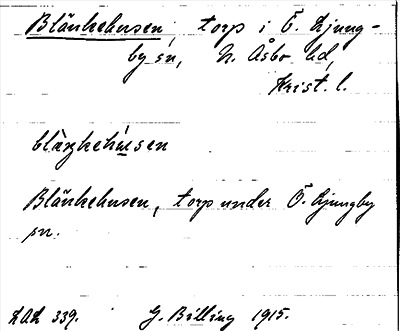 Blänkehusen, torp i Ö. Ljung-
by sn, N. Åsbo hd,
Krist. l.
blänkehu̇sen
Blänkehusen, torp under Ö. Ljungby
sn.
LAL 339. G. Billing 1915.